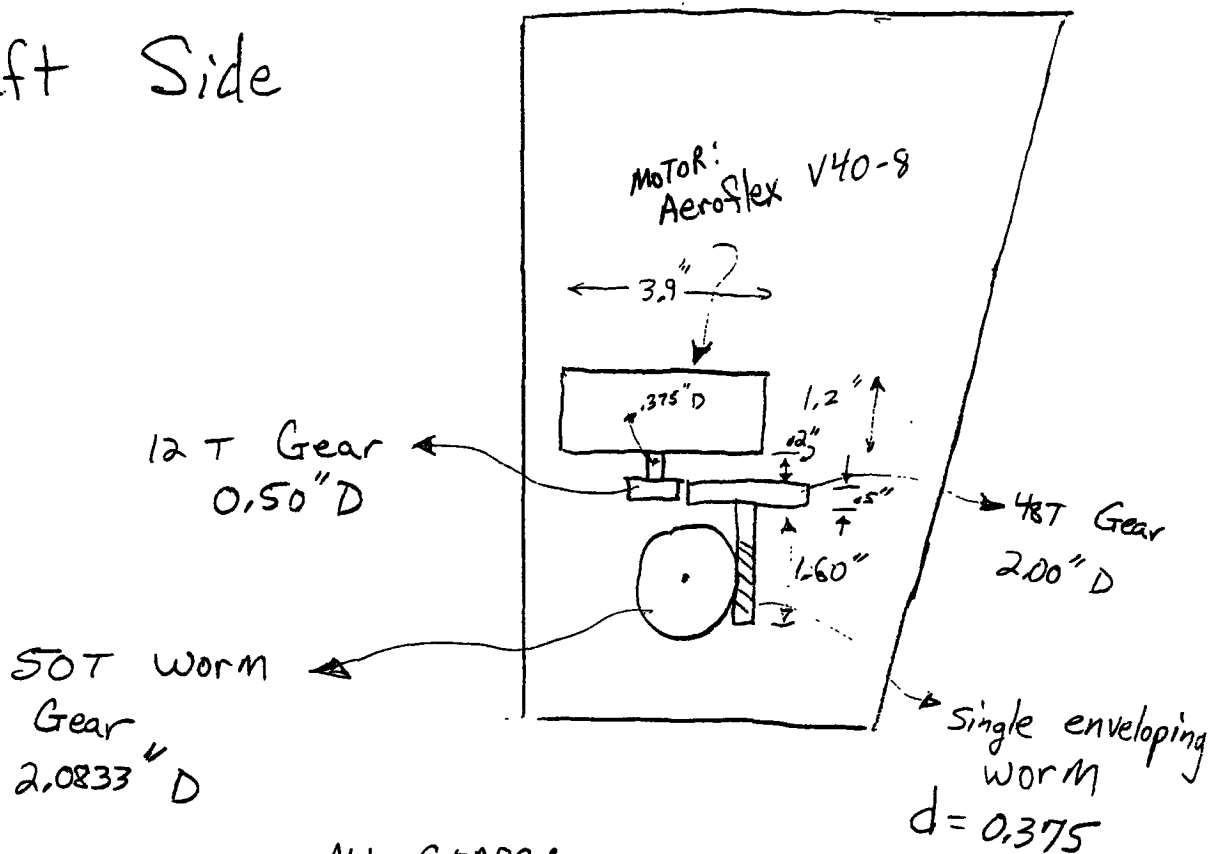 ft Side
MOTOR:
Aeroflex V40-8
3.9"
.375" D
1.2"
.2"
12 T Gear
0.50" D
.5"
48T Gear
2.00" D
1.60"
50T Worm
Gear
2.0833" D
Single enveloping
worm
d = 0.375